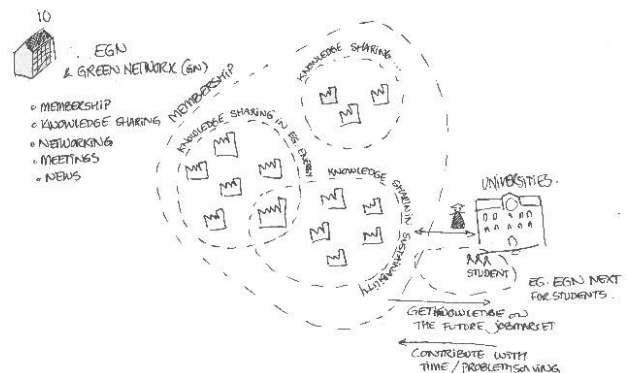 10
EGN
& GREEN NETWORK (GN)
o MEMBERSHIP
o KNOWLEDGE SHARING
o NETWORKING
o MEETINGS
o NEWS
MEMBERSHIP
KNOWLEDGE SHARING...
KNOWLEDGE SHARING IN EG. ENERGY
KNOWLEDGE SHARIN IN SUSTAINABILITY
UNIVERSITIES.
STUDENT
EG. EGN NEXT
FOR STUDENTS.
GET KNOWLEDGE ON
THE FUTURE JOBMARKET
CONTRIBUTE WITH
TIME / PROBLEMSOLVING